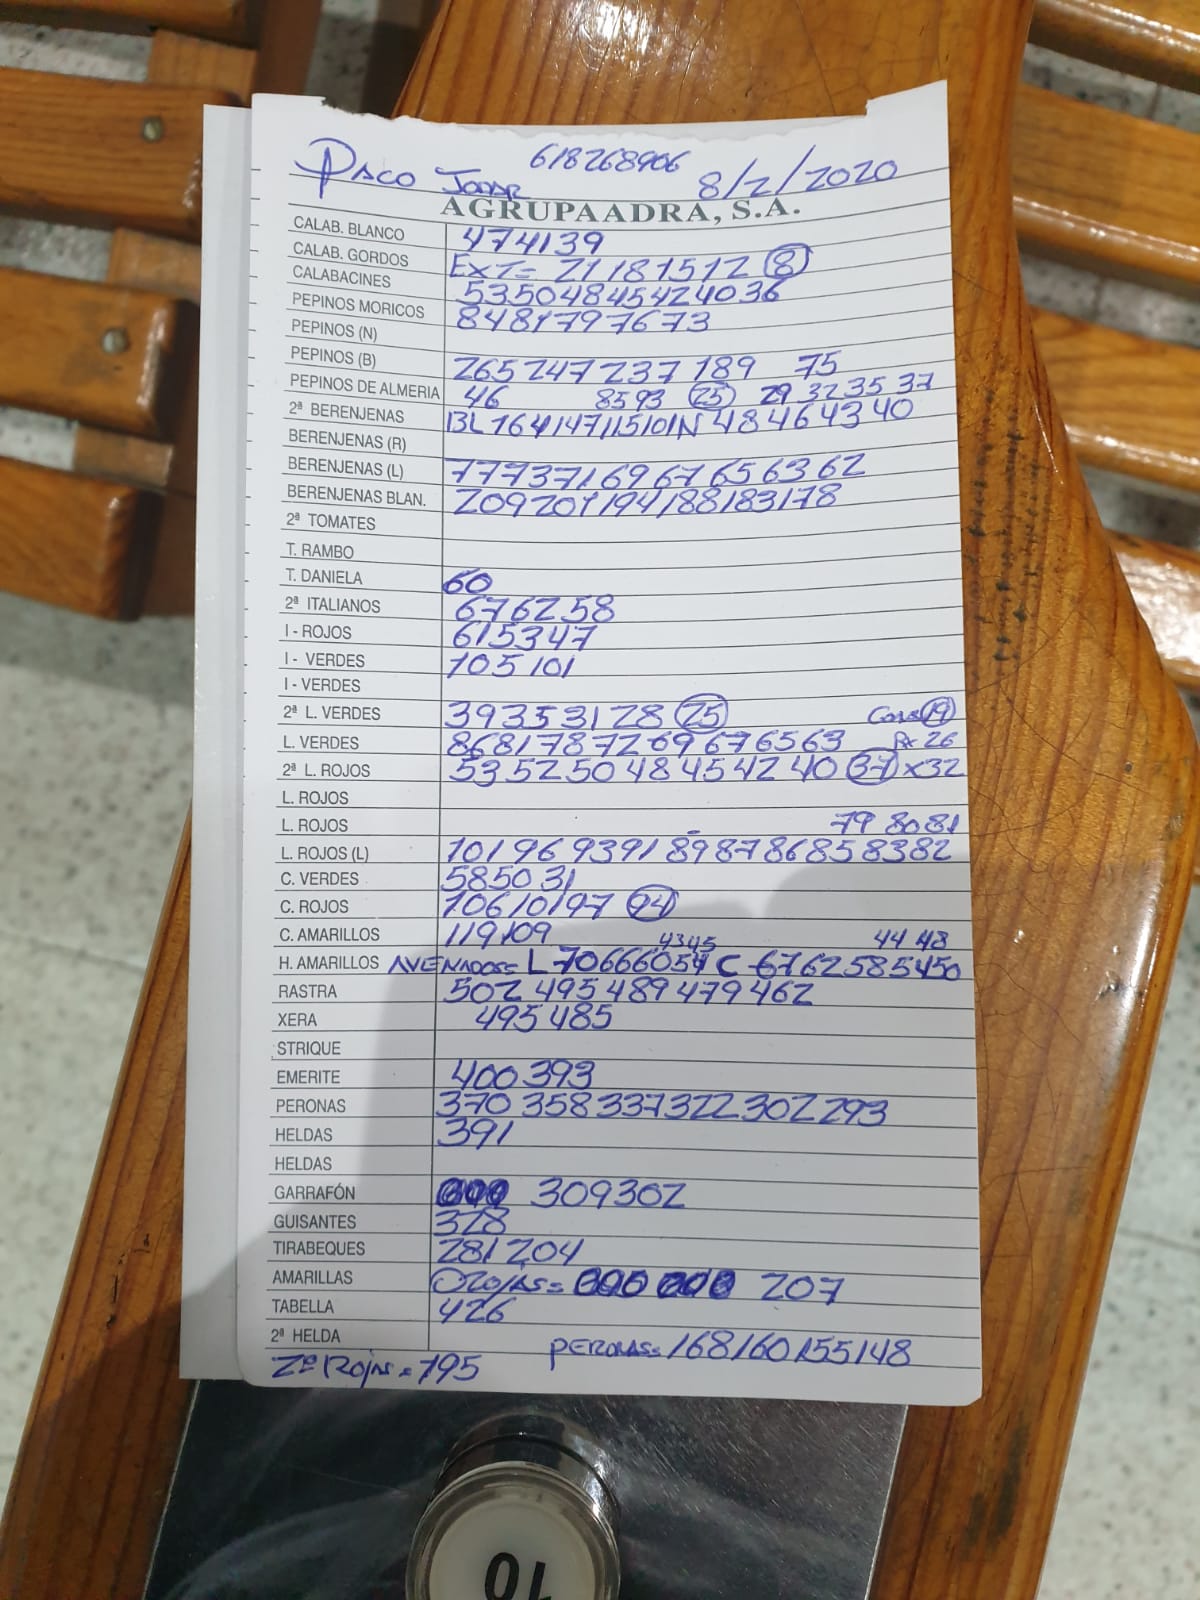 PACO JODAR 618268906 8/2/2020
AGRUPAADRA, S.A.
CALAB. BLANCO 47 41 39
CALAB. GORDOS EXT= 21 18 15 12 (8)
CALABACINES 53 50 48 45 42 40 36
PEPINOS MORICOS 84 81 79 76 73
PEPINOS (N)
PEPINOS (B) 265 247 237 189 75
PEPINOS DE ALMERIA 46 85 93 (25) 29 32 35 37
2ª BERENJENAS BL 164 147 115 101 N 48 46 43 40
BERENJENAS (R)
BERENJENAS (L) 77 73 71 69 67 65 63 62
BERENJENAS BLAN. 209 201 194 188 183 178
2ª TOMATES
T. RAMBO
T. DANIELA 60
2ª ITALIANOS 67 62 58
I - ROJOS 61 53 47
I - VERDES 105 101
I - VERDES
2ª L. VERDES 39 35 31 28 (25) (19)
L. VERDES 86 81 78 72 69 67 65 63 26
2ª L. ROJOS 53 52 50 48 45 42 40 (37) x32
L. ROJOS
L. ROJOS 79 80 81
L. ROJOS (L) 101 96 93 91 89 87 86 85 83 82
C. VERDES 58 50 31
C. ROJOS 106 101 97 (94)
C. AMARILLOS 119 109 43 45 44 48
H. AMARILLOS AVENADOS= L 70 66 60 54 C 67 62 58 54 50
RASTRA 502 495 489 479 462
XERA 495 485
STRIQUE
EMERITE 400 393
PERONAS 370 358 337 322 302 293
HELDAS 391
HELDAS
GARRAFÓN 309 302
GUISANTES 328
TIRABEQUES 281 204
AMARILLAS ROJAS= 207
TABELLA 426
2ª HELDA PERONAS= 168 160 155 148
2ª ROJAS = 195
10